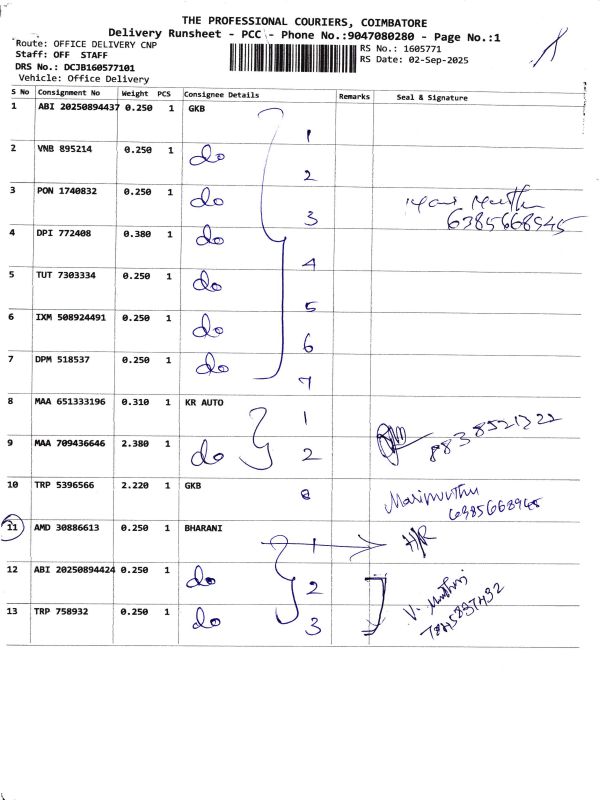 THE PROFESSIONAL COURIERS, COIMBATORE
Delivery Runsheet - PCC - Phone No.:9047080280 - Page No.:1
Route: OFFICE DELIVERY CNP
Staff: OFF STAFF
DRS No.: DCJB160577101
Vehicle: Office Delivery
RS No.: 1605771
RS Date: 02-Sep-2025
S No Consignment No Weight PCS Consignee Details Remarks Seal & Signature
1 ABI 20250894437 0.250 1 GKB 1
2 VNB 895214 0.250 1 do 2
3 PON 1740832 0.250 1 do 3
6385668945
4 DPI 772408 0.380 1 do 4
5 TUT 7303334 0.250 1 do 5
6 IXM 508924491 0.250 1 do 6
7 DPM 518537 0.250 1 do 7
8 MAA 651333196 0.310 1 KR AUTO 1
8838521222
9 MAA 709436646 2.380 1 do 2
10 TRP 5396566 2.220 1 GKB Marimuthu
6385668945
11 AMD 30886613 0.250 1 BHARANI 1 H/R
12 ABI 20250894424 0.250 1 do 2
13 TRP 758932 0.250 1 do 3